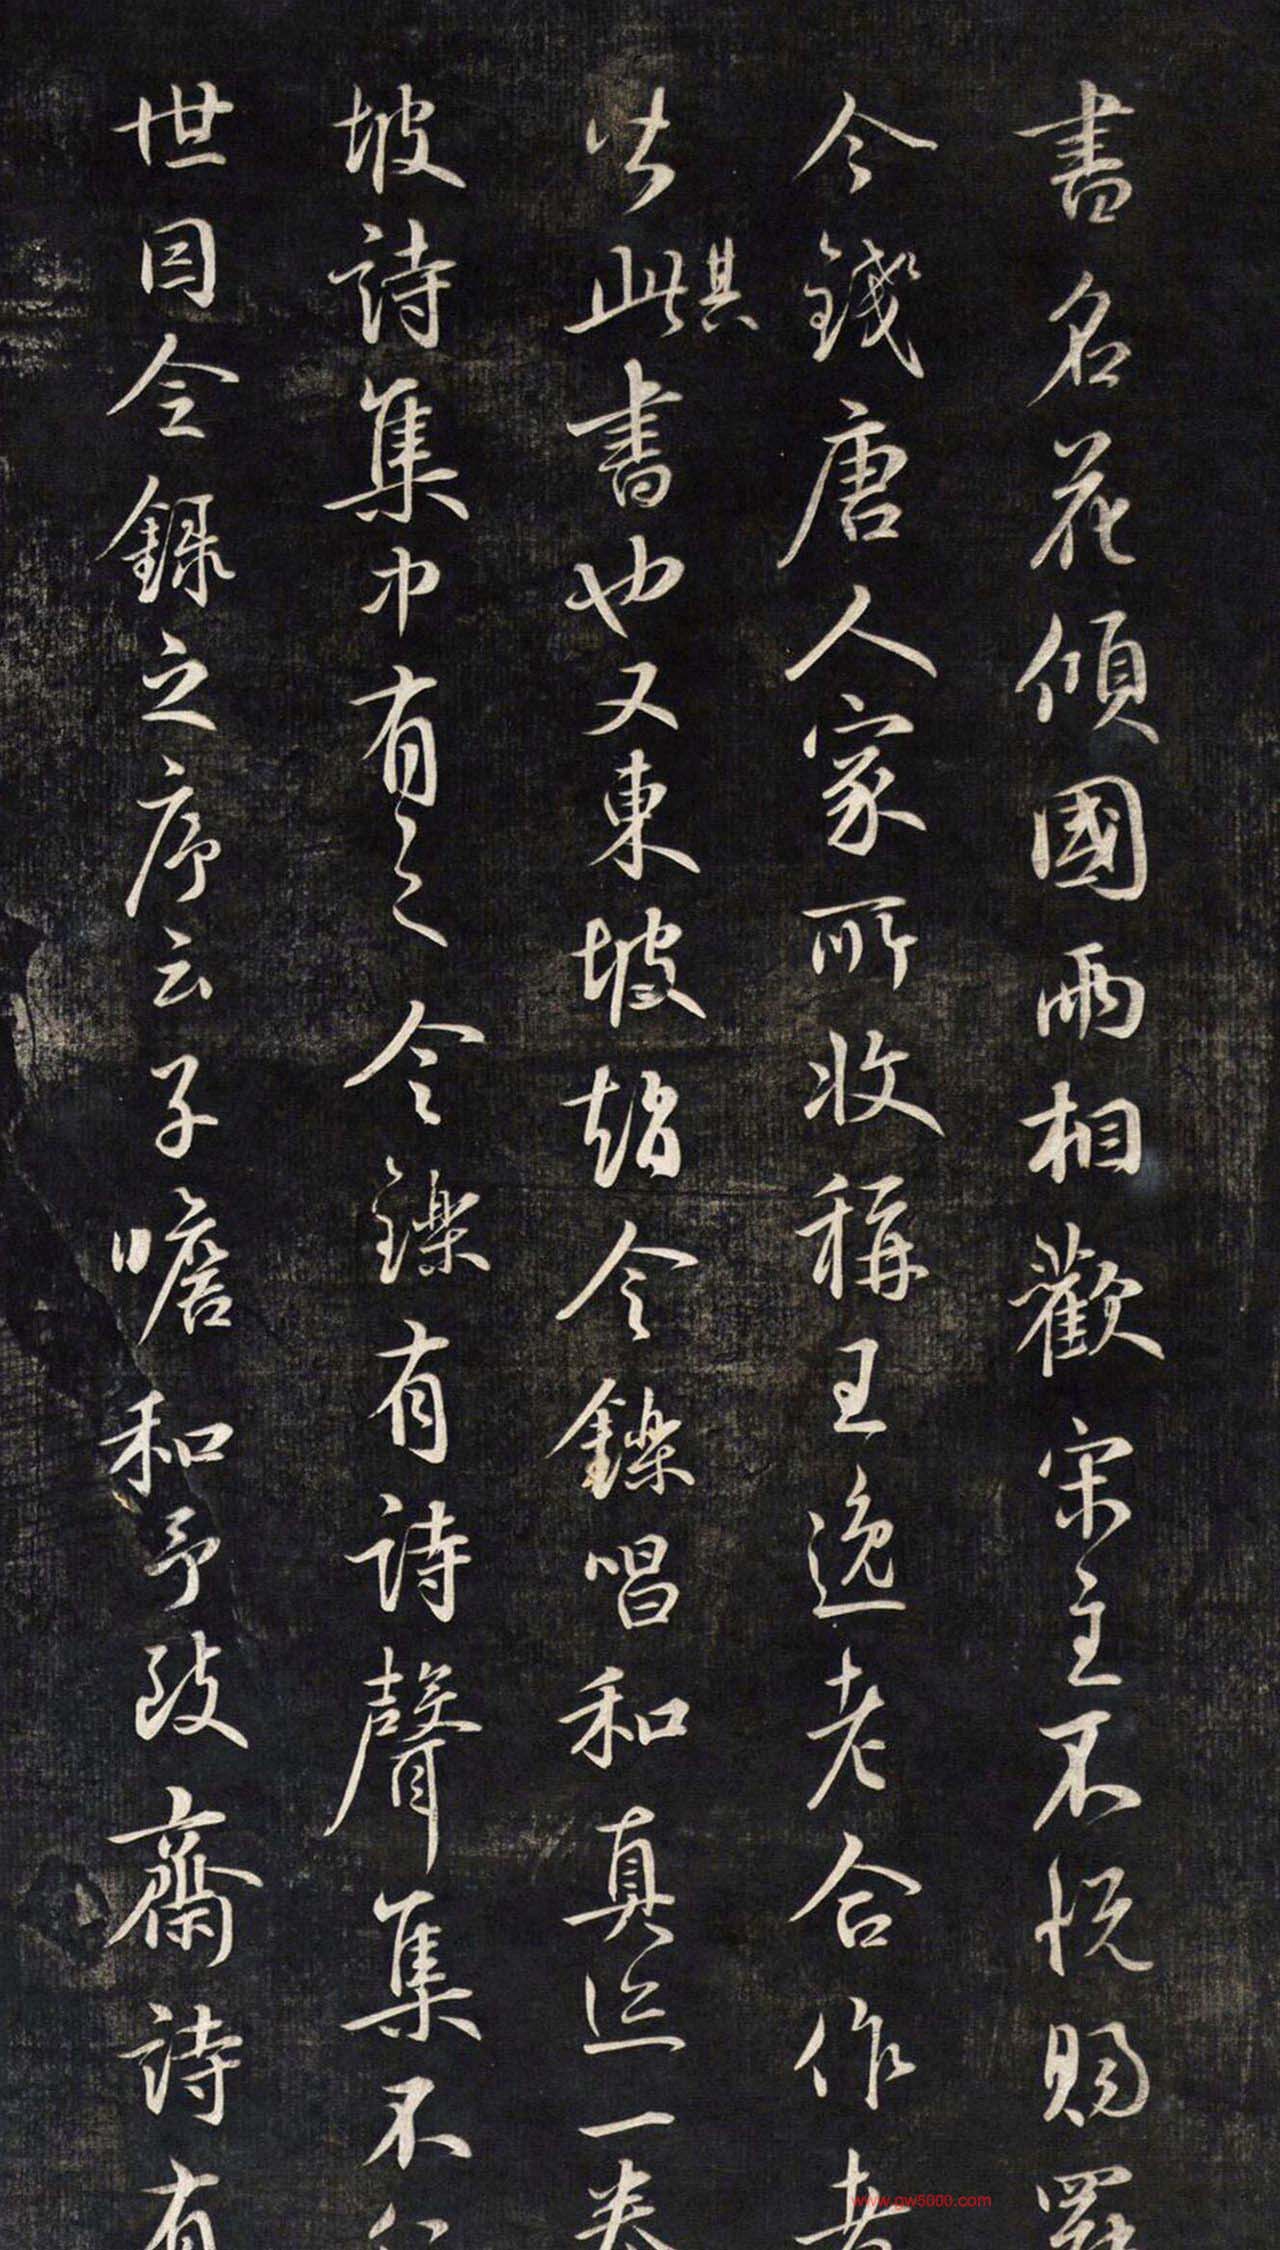 書名花傾國兩相歡宋主不悅賜罷
今錢唐人家所收稱王逸老合作者
皆此書也又東坡趙令鑠唱和真迹一卷
其
坡詩集中有之令鑠有詩聲集不
世因令錄之序云子瞻和予致齋詩有
www.gw5000.com